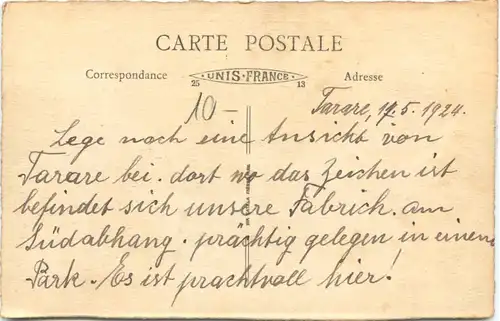 CARTE POSTALE
Correspondance
25 UNIS-FRANCE 13
Adresse
10-
Tarare, 17.5.1924.
Lege noch eine Ansicht von
Tarare bei. dort wo das Zeichen ist
befindet sich unsere Fabrick. am
Südabhang. prächtig gelegen in einem
Park. Es ist prachtvoll hier!